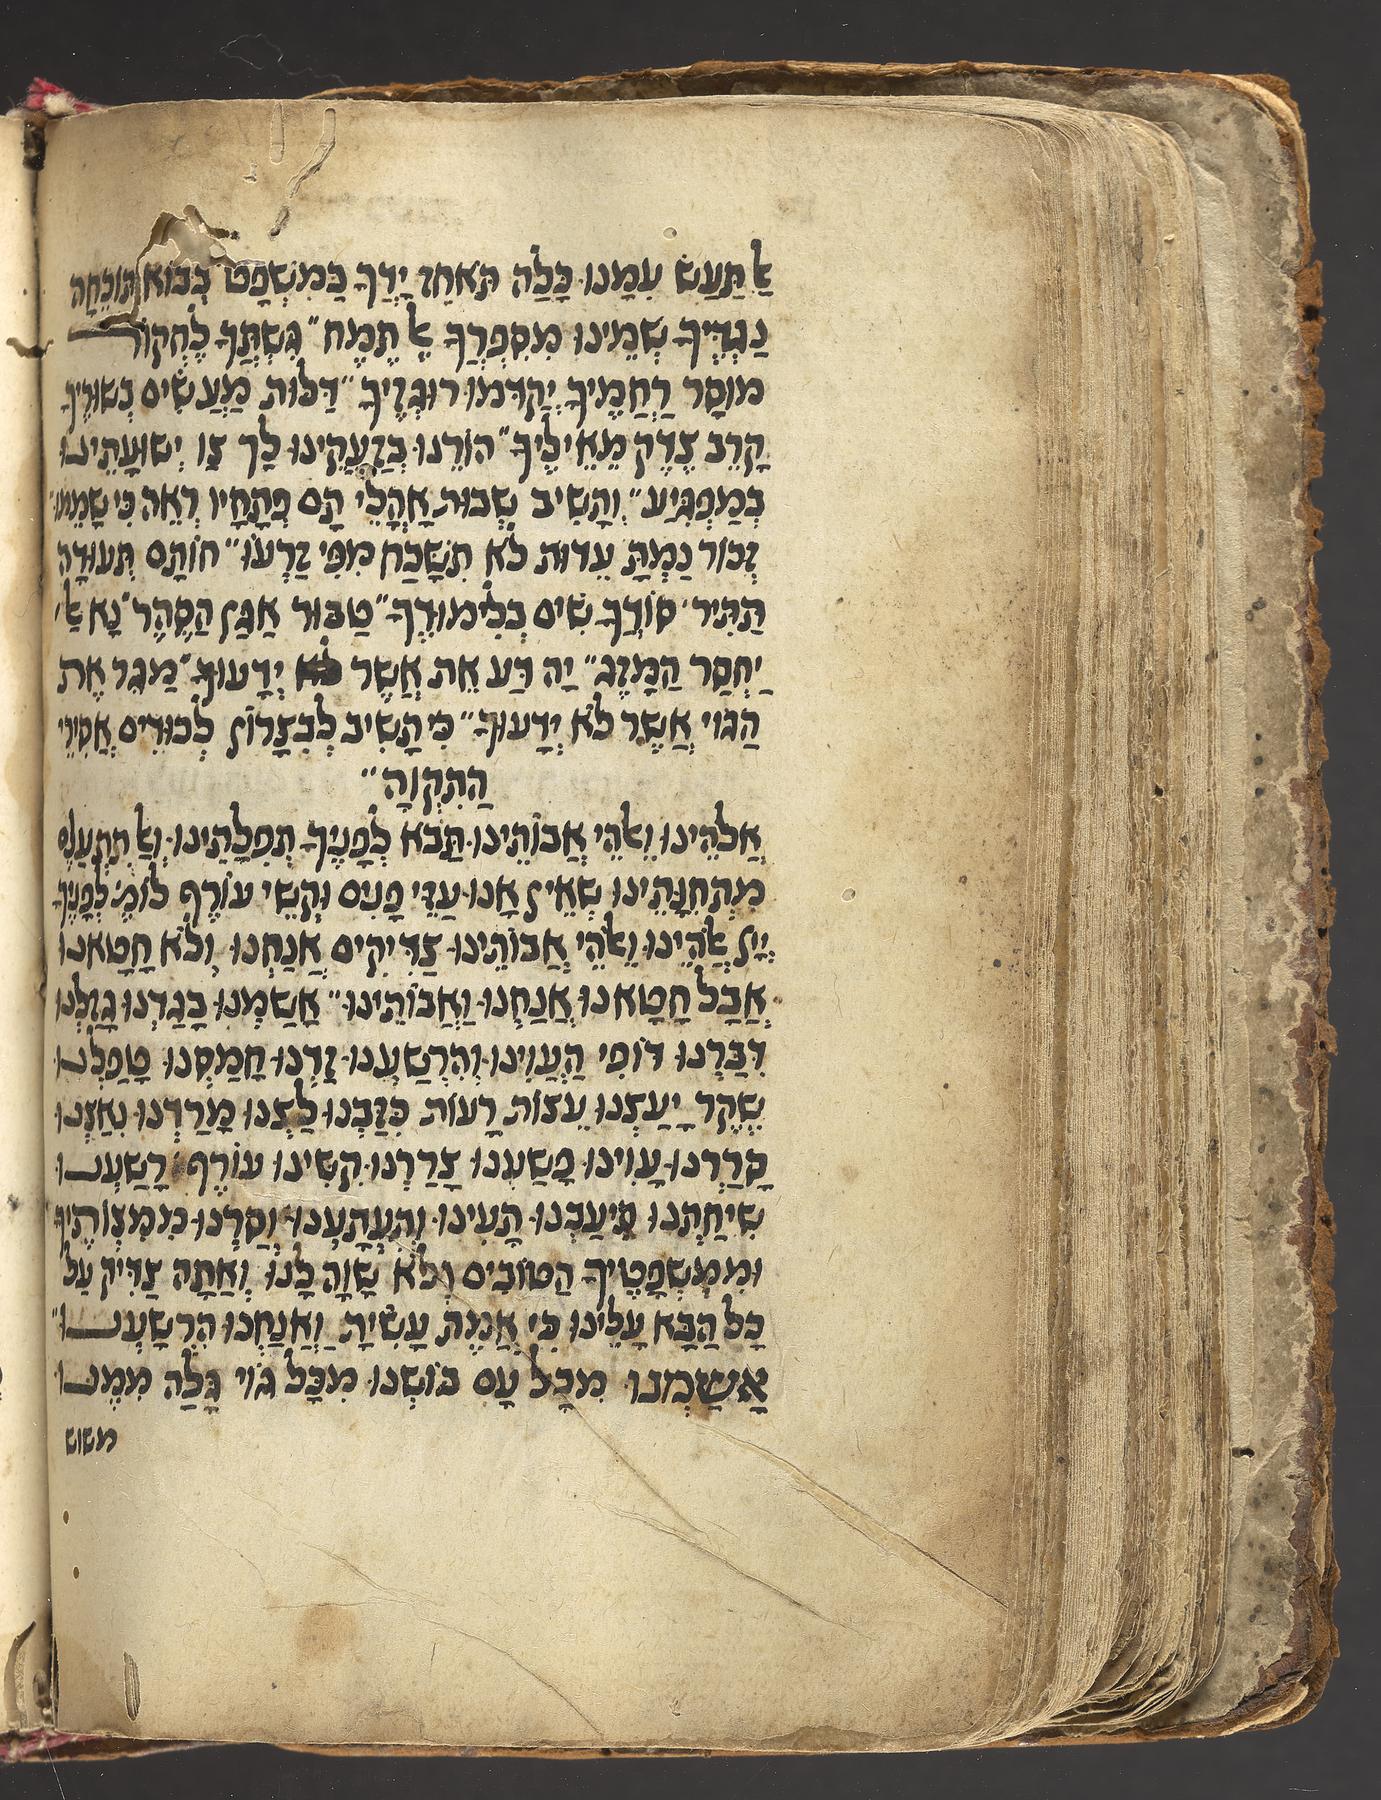 אַל תַּעַשׂ עִמָנוּ כָּלָה תֹּאחֵז יָדְךָ בַּמִשְׁפָּט בְּבוֹא תוֹכֵחָה
נֶגְדֶּיךָ שְׁמֵינוּ מִסִפְרְךָ אַל תֶמַח״ גִשְׁתְּךָ לַחְקוֹר
מוּסָר רַחֲמֶיךָ יְקַדְּמוּ רוּגְזֶיךָ״ דַּלּוּת מַעֲשִׂים בְּשׁוּרֶיךָ
קָרֵב צֶדֶק מֵאֵילֶיךָ״ הוֹרֵנוּ בְּזַעֲקֵינוּ לָךְ צַו יְשׁוּעָתֵינוּ
בְּמַפְגִּיעַ״ וְתָשִׁיב שְׁבוּת אָהֳלֵי תָם פְּתָחָיו רְאֵה כִּי שָׁמֵמוּ״
זְכוֹר נַמְתָּ עֵדוּת לֹא תִשָּׁכַח מִפִּי זַרְעוֹ״ חוֹתַם תְּעוּדָה
הַתִּיר סוֹדְךָ שִׂים בְּלִימוּדֶיךָ״ טַבּוּר אַגַּן הַסַּהַר״ נָא אַל
יֶחְסַר הַמָּזֶג״ יָהּ דַּע אֵת אֲשֶׁר לֹא יְדָעוּךָ״ מַגֵּר אֶת
הַגּוֹי אֲשֶׁר לֹא יְדָעוּךָ״ כִּי תָשִׁיב לְבִצָּרוֹן לְכוּדִים אֲסִירֵי
הַתִּקְוָה״
אֱלֹהֵינוּ וֵאלֹהֵי אֲבוֹתֵינוּ תָּבֹא לְפָנֶיךָ תְּפִלָּתֵינוּ וְאַל תִתְעַלַּם
מִתְּחִנָּתֵינוּ שְׁאֵין אָנוּ עַזֵּי פָנִים וּקְשֵׁי עוֹרֶף לוֹמַ׳ לְפָנֶיךָ
יְיָ אֱלֹהֵינוּ וֵאלֹהֵי אֲבוֹתֵינוּ צַדִּיקִים אֲנַחְנוּ וְלֹא חָטָאנוּ
אֲבָל חָטָאנוּ אֲנַחְנוּ וַאֲבוֹתֵינוּ״ אָשַׁמְנוּ בָּגַדְנוּ גָּזַלְנוּ
דִּבַּרְנוּ דוֹפִי הֶעֱוִינוּ וְהִרְשַׁעְנוּ זַדְנוּ חָמַסְנוּ טָפַלְנוּ
שֶׁקֶר יָעַצְנוּ עֵצוֹת רָעוֹת כִּזַּבְנוּ לַצְנוּ מָרַדְנוּ נִאַצְנוּ
סָרַרְנוּ עָוִינוּ פָּשַׁעְנוּ צָרַרְנוּ קִשִּׁינוּ עוֹרֶף רָשַׁעְנוּ
שִׁיחַתְנוּ תִּיעַבְנוּ תָּעִינוּ וְתִעְתָּעְנוּ וְסַרְנוּ מִמִּצְוֹתֶיךָ
וּמִמִּשְׁפָּטֶיךָ הַטּוֹבִים וְלֹא שָׁוָה לָנוּ וְאַתָּה צַדִּיק עַל
כָּל הַבָּא עָלֵינוּ כִּי אֱמֶת עָשִׂיתָ וַאֲנַחְנוּ הִרְשָׁעְנוּ״
אָשַׁמְנוּ מִכָּל עָם בּוֹשְׁנוּ מִכָּל גוֹי גָּלָה מִמֶּנּוּ
משוש